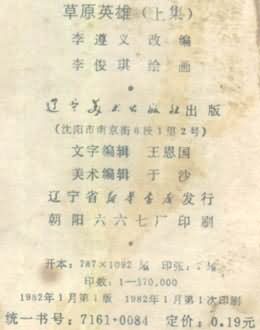 草原英雄（上集）
李遵义 改 编
李俊琪 绘 画
辽宁美术出版社出版
（沈阳市南京街6段1里2号）
文字编辑 王恩国
美术编辑 于 沙
辽宁省新华书店发行
朝阳六六七厂印刷
开本：787×1092 印张：
印数：1—370,000
1982年1月第1版 1982年1月第1次印刷
统一书号：7161·0084 定价：0.19元